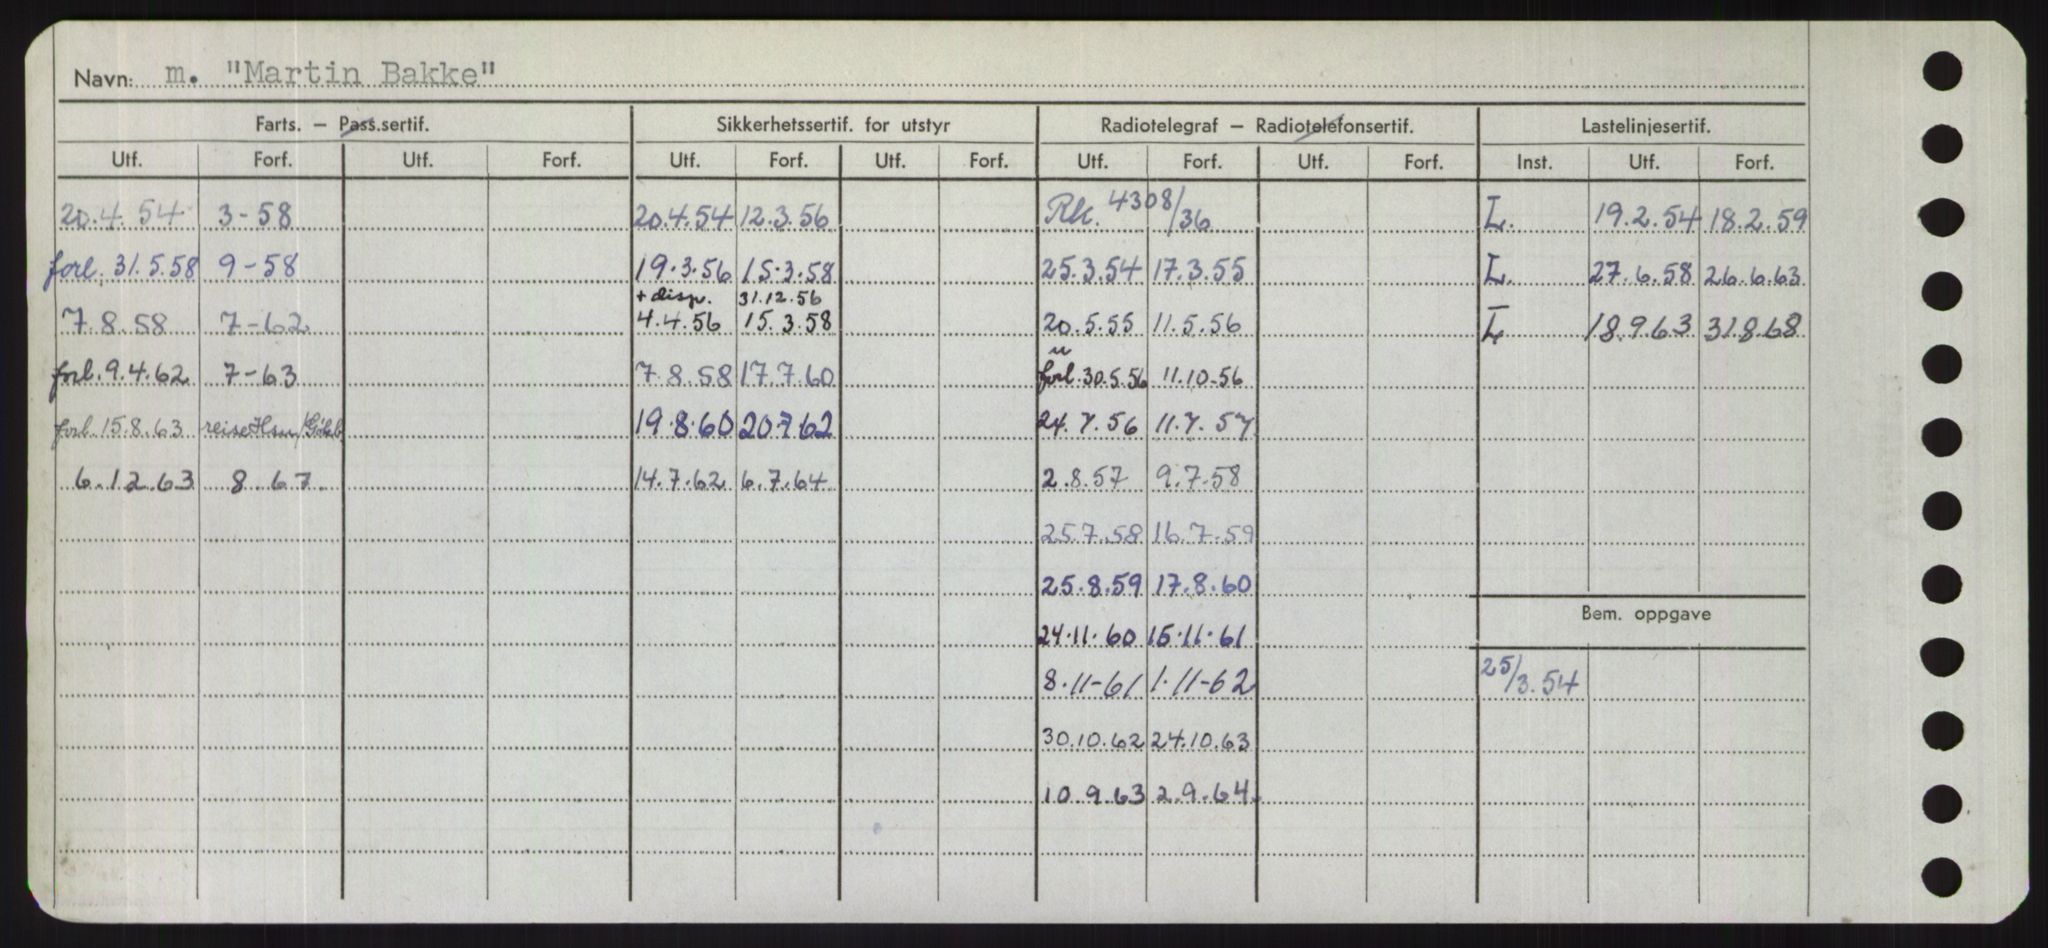 Navn: m. "Martin Bakke"
Farts. – Pass.sertif. Sikkerhetssertif. for utstyr Radiotelegraf – Radiotelefonsertif. Lastelinjesertif.
Utf. Forf. Utf. Forf. Utf. Forf. Utf. Forf. Utf. Forf. Utf. Forf. Inst. Utf. Forf.
20.4.54 3-58 20.4.54 12.3.56 Rk. 4308/36 L. 19.2.54 18.2.59
forl. 31.5.58 9-58 19.3.56 15.3.58 25.3.54 17.3.55 L. 27.6.58 26.6.63
+ disp. 31.12.56
7.8.58 7-62 4.4.56 15.3.58 20.5.55 11.5.56 L 18.9.63 31.8.68
forl. 9.4.62 7-63 7.8.58 17.7.60 forl. 30.5.56 11.10-56
forl. 15.8.63 reise 19.8.60 20.7.62 24.7.56 11.7.57
6.12.63 8.67. 14.7.62 6.7.64 2.8.57 9.7-58
25.7.58 16.7.59
25.8.59 17.8.60
Bem. oppgave
24.11.60 15.11.61
8.11-61 1.11-62 25/3.54
30.10.62 24.10.63
10.9.63 2.9.64.